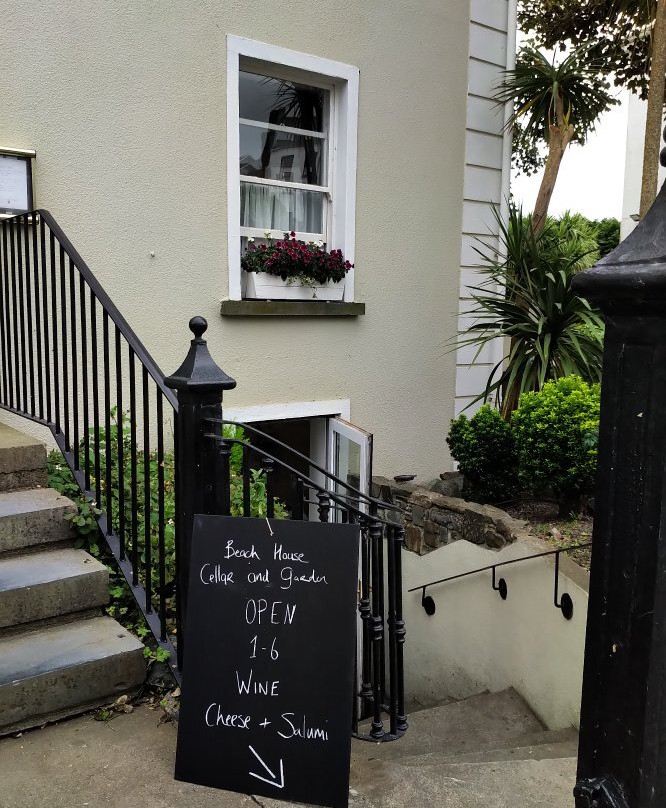 Beach House
Cellar and Garden
OPEN
1-6
WINE
Cheese + Salumi